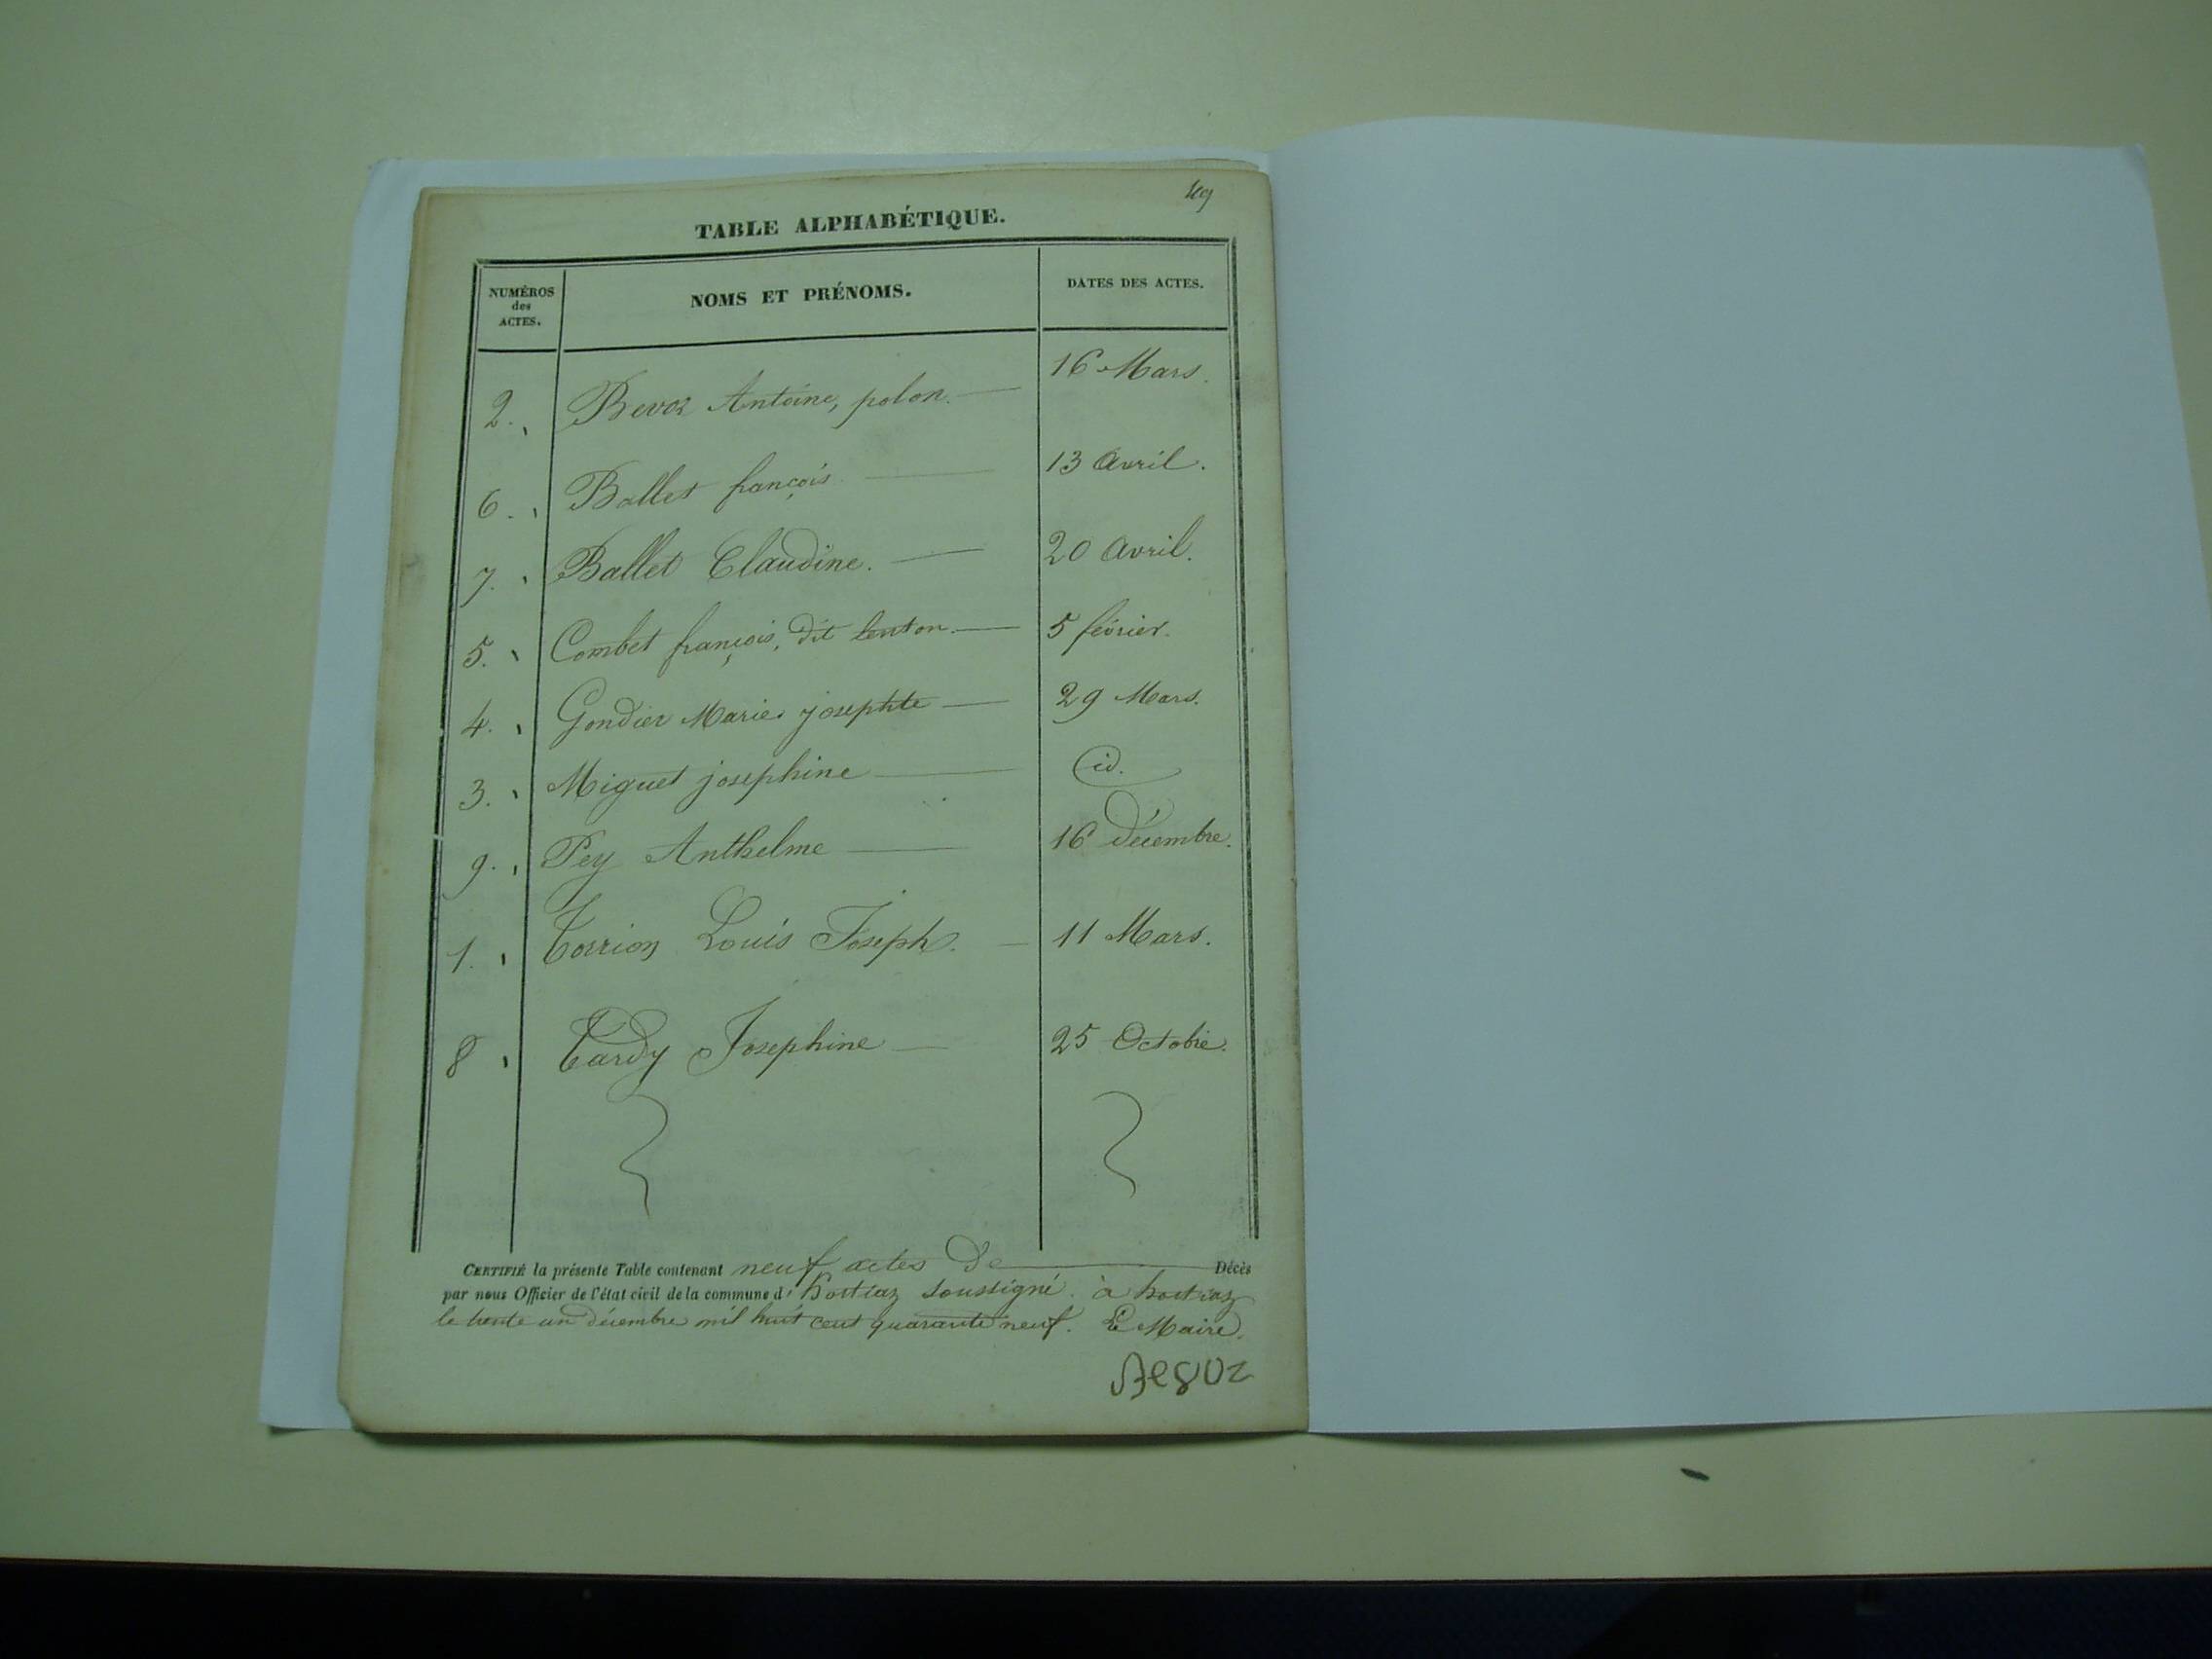 49
TABLE ALPHABÉTIQUE.
NUMÉROS des ACTES. NOMS ET PRÉNOMS. DATES DES ACTES.
2. Bevoz Antoine, polon. 16 Mars.
6. Ballet françois 13 Avril.
7. Ballet Claudine. 20 Avril.
5. Combet françois, dit 5 février.
4. Gondier Marie josephte 29 Mars.
3. Miguet josephine id.
9. Pey Anthelme 16 décembre.
1. Torrion Louis Joseph. 11 Mars.
8 Tardy Josephine 25 Octobre.
CERTIFIÉ la présente Table contenant neuf actes de Décès
par nous Officier de l'état civil de la commune d'hostiaz soussigné. à hostiaz
le trente un décembre mil huit cent quarante neuf. Le Maire.